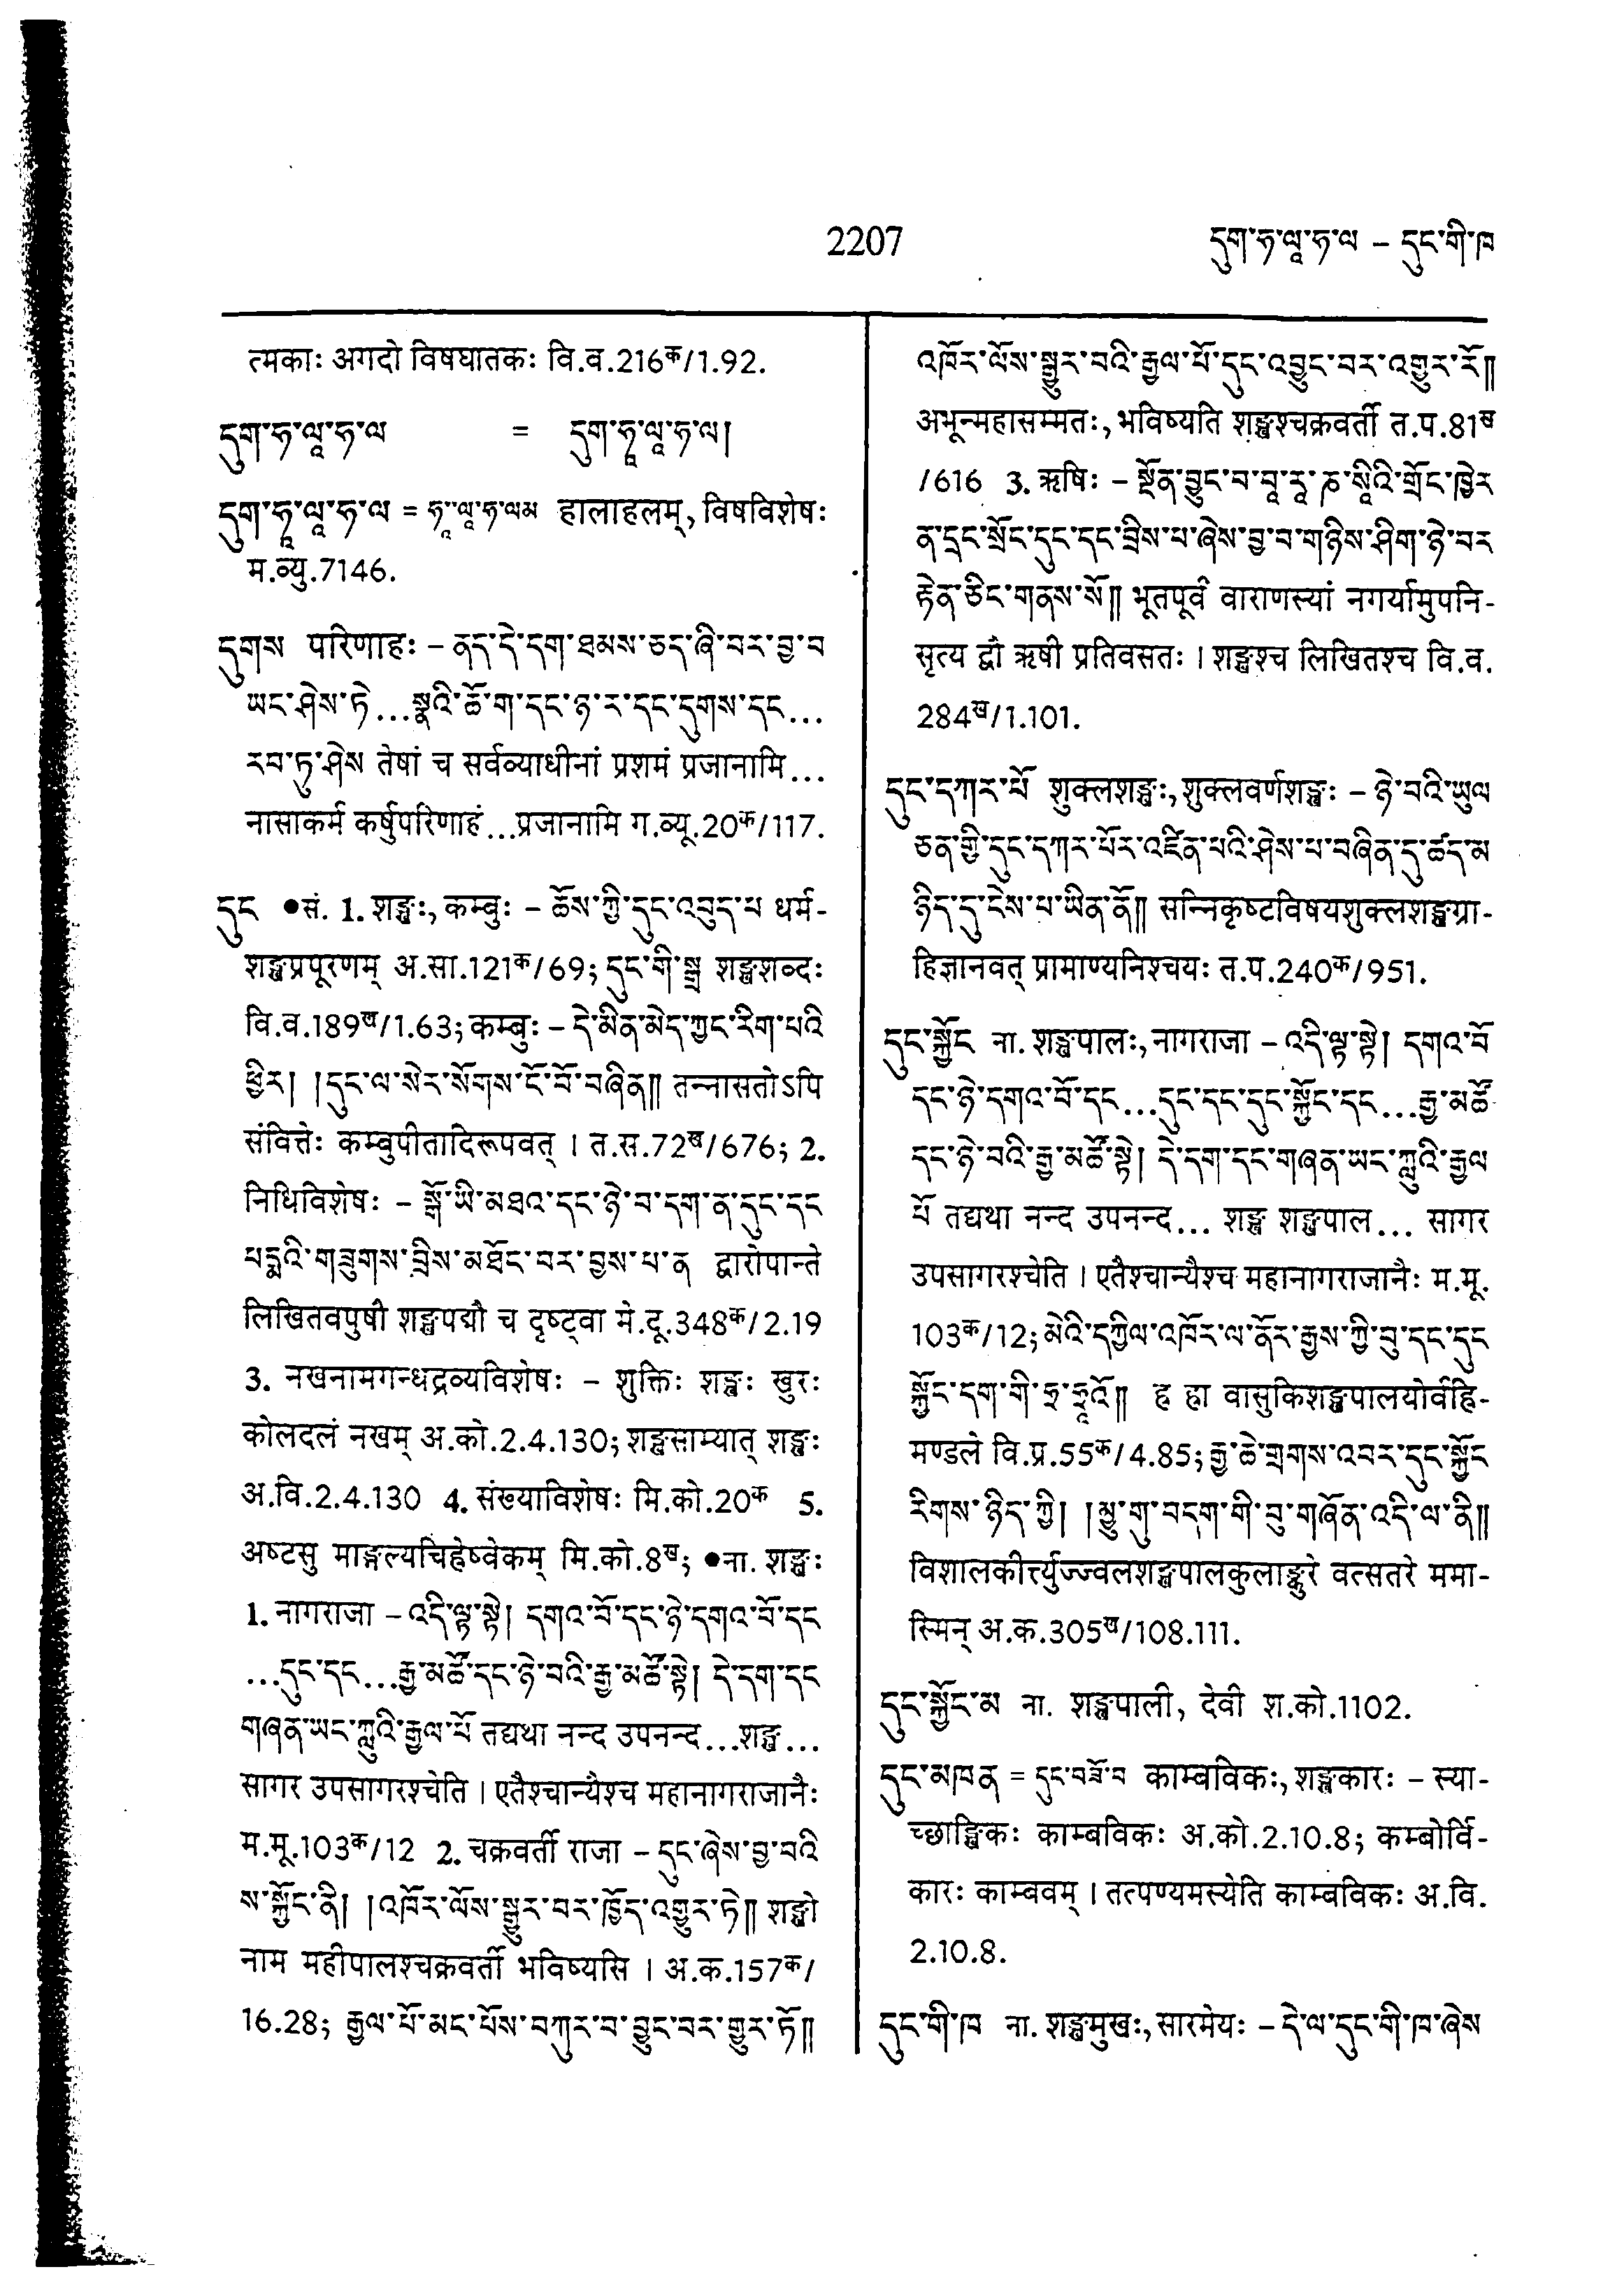 2207
དུག་ཧ་ལཱ་ཧ་ལ – དུང་གི་ཁ
त्मकाः अगदो विषघातकः वि.व.216क/1.92.
དུག་ཧ་ལཱ་ཧ་ལ = དུག་ཧཱ་ལཱ་ཧ་ལ།
དུག་ཧཱ་ལཱ་ཧ་ལ = ཧཱ་ལཱ་ཧ་ལམ हालाहलम्, विषविशेषः
म.व्यु.7146.
དུགས परिणाहः – ནད་དེ་དག་ཐམས་ཅད་ཞི་བར་བྱ་བ
ཡང་ཤེས་ཏེ...སྣའི་ཆོ་ག་དང་ཉ་ར་དང་དུགས་དང...
རབ་ཏུ་ཤེས तेषां च सर्वव्याधीनां प्रशमं प्रजानामि...
नासाकर्म कर्षुपरिणाहं...प्रजानामि ग.व्यू.20क/117.
དུང ●सं. 1. शङ्खः, कम्बुः – ཆོས་ཀྱི་དུང་འབུད་པ धर्म-
शङ्खप्रपूरणम् अ.सा.121क/69; དུང་གི་སྒྲ शङ्खशब्दः
वि.व.189ख/1.63; कम्बुः – དེ་མིན་མེད་ཀྱང་རིག་པའི
ཕྱིར། །དུང་ལ་སེར་སོགས་ངོ་བོ་བཞིན༎ तन्नासतोऽपि
संवित्तेः कम्बुपीतादिरूपवत् । त.स.72ख/676; 2.
निधिविशेषः – སྒོ་ཡི་མཐའ་དང་ཉེ་བ་དག་ན་དུང་དང
པདྨའི་གཟུགས་བྲིས་མཐོང་བར་བྱས་པ་ན द्वारोपान्ते
लिखितवपुषी शङ्खपद्मौ च दृष्ट्वा मे.दू.348क/2.19
3. नखनामगन्धद्रव्यविशेषः – शुक्तिः शङ्खः खुरः
कोलदलं नखम् अ.को.2.4.130; शङ्खसाम्यात् शङ्खः
अ.वि.2.4.130 4. संख्याविशेषः मि.को.20क 5.
अष्टसु माङ्गल्यचिह्नेष्वेकम् मि.को.8ख; ●ना. शङ्खः
1. नागराजा – འདི་ལྟ་སྟེ། དགའ་བོ་དང་ཉེ་དགའ་བོ་དང
...དུང་དང...རྒྱ་མཚོ་དང་ཉེ་བའི་རྒྱ་མཚོ་སྟེ། དེ་དག་དང
གཞན་ཡང་ཀླུའི་རྒྱལ་པོ तद्यथा नन्द उपनन्द...शङ्ख...
सागर उपसागरश्चेति । एतैश्चान्यैश्च महानागराजानैः
म.मू.103क/12 2. चक्रवर्ती राजा – དུང་ཞེས་བྱ་བའི
ས་སྐྱོང་ནི། །འཁོར་ལོས་སྒྱུར་བར་ཁྱོད་འགྱུར་ཏེ༎ शङ्खो
नाम महीपालश्चक्रवर्ती भविष्यसि । अ.क.157क/
16.28; རྒྱལ་པོ་མང་པོས་བཀུར་བ་བྱུང་བར་གྱུར་ཏོ༎
འཁོར་ལོས་སྒྱུར་བའི་རྒྱལ་པོ་དུང་འབྱུང་བར་འགྱུར་རོ༎
अभून्महासम्मतः, भविष्यति शङ्खश्चक्रवर्ती त.प.81ख
/616 3. ऋषिः – སྔོན་བྱུང་བ་བཱ་རཱ་ཎ་སཱིའི་གྲོང་ཁྱེར
ན་དྲང་སྲོང་དུང་དང་བྲིས་པ་ཞེས་བྱ་བ་གཉིས་ཤིག་ཉེ་བར
རྟེན་ཅིང་གནས་སོ༎ भूतपूर्वं वाराणस्यां नगर्यामुपनि-
सृत्य द्वौ ऋषी प्रतिवसतः । शङ्खश्च लिखितश्च वि.व.
284ख/1.101.
དུང་དཀར་པོ शुक्लशङ्खः, शुक्लवर्णशङ्खः – ཉེ་བའི་ཡུལ
ཅན་གྱི་དུང་དཀར་པོར་འཛིན་པའི་ཤེས་པ་བཞིན་དུ་ཚད་མ
ཉིད་དུ་ངེས་པ་ཡིན་ནོ༎ सन्निकृष्टविषयशुक्लशङ्खग्रा-
हिज्ञानवत् प्रामाण्यनिश्चयः त.प.240क/951.
དུང་སྐྱོང ना. शङ्खपालः, नागराजा – འདི་ལྟ་སྟེ། དགའ་བོ
དང་ཉེ་དགའ་བོ་དང...དུང་དང་དུང་སྐྱོང་དང...རྒྱ་མཚོ
དང་ཉེ་བའི་རྒྱ་མཚོ་སྟེ། དེ་དག་དང་གཞན་ཡང་ཀླུའི་རྒྱལ
པོ तद्यथा नन्द उपनन्द... शङ्ख शङ्खपाल... सागर
उपसागरश्चेति । एतैश्चान्यैश्च महानागराजानैः म.मू.
103क/12; མེའི་དཀྱིལ་འཁོར་ལ་ནོར་རྒྱས་ཀྱི་བུ་དང་དུང
སྐྱོང་དག་གི་ཧྲ་ཧྲཱའོ༎ ह ह्रा वासुकिशङ्खपालयोर्वह्नि-
मण्डले वि.प्र.55क/4.85; རྒྱ་ཆེ་གྲགས་འབར་དུང་སྐྱོང
རིགས་ཉིད་ཀྱི། །མྱུ་གུ་བདག་གི་བུ་གཞོན་འདི་ལ་ནི༎
विशालकीर्त्त्युज्ज्वलशङ्खपालकुलाङ्कुरे वत्सतरे ममा-
स्मिन् अ.क.305ख/108.111.
དུང་སྐྱོང་མ ना. शङ्खपाली, देवी श.को.1102.
དུང་མཁན = དུང་བཟོ་བ काम्बविकः, शङ्खकारः – स्या-
च्छाङ्खिकः काम्बविकः अ.को.2.10.8; कम्बोर्वि-
कारः काम्बवम् । तत्पण्यमस्येति काम्बविकः अ.वि.
2.10.8.
དུང་གི་ཁ ना. शङ्खमुखः, सारमेयः – དེ་ལ་དུང་གི་ཁ་ཞེས